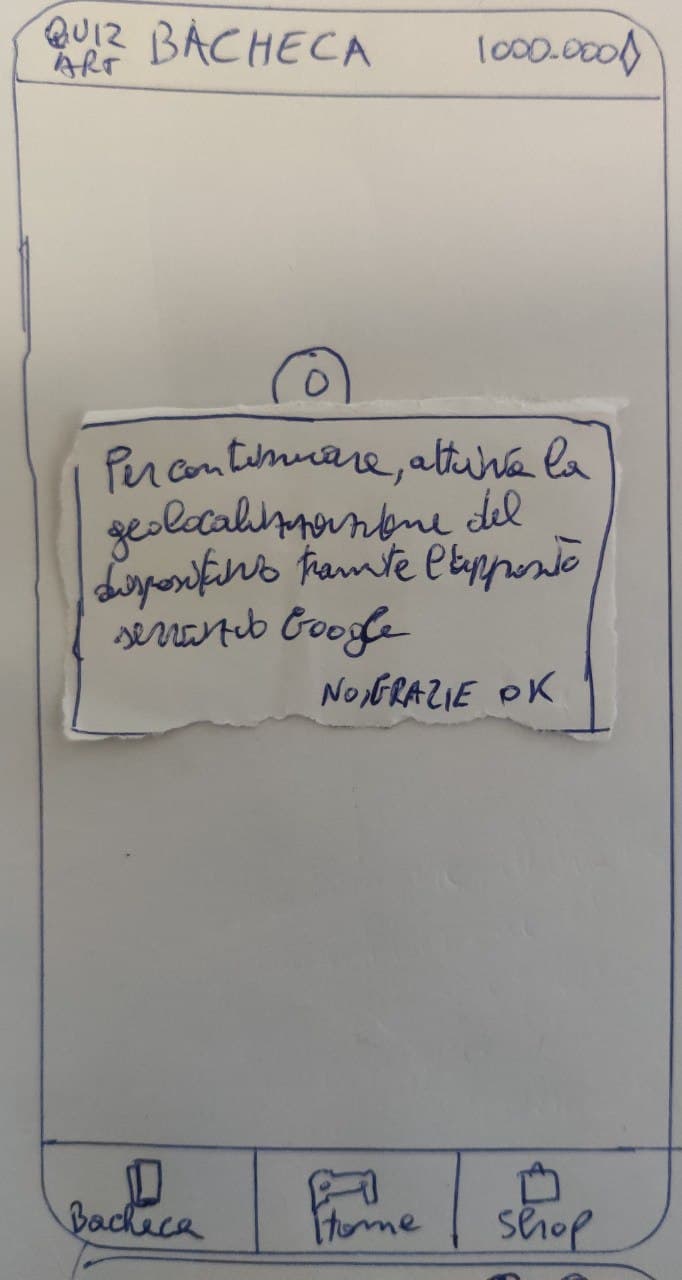 QUIZ ART BACHECA 1000.000
Per continuare, attiva la
geolocalizzazione del
dispositivo tramite l'apposito
servizio Google
NO, GRAZIE OK
Bacheca Home Shop